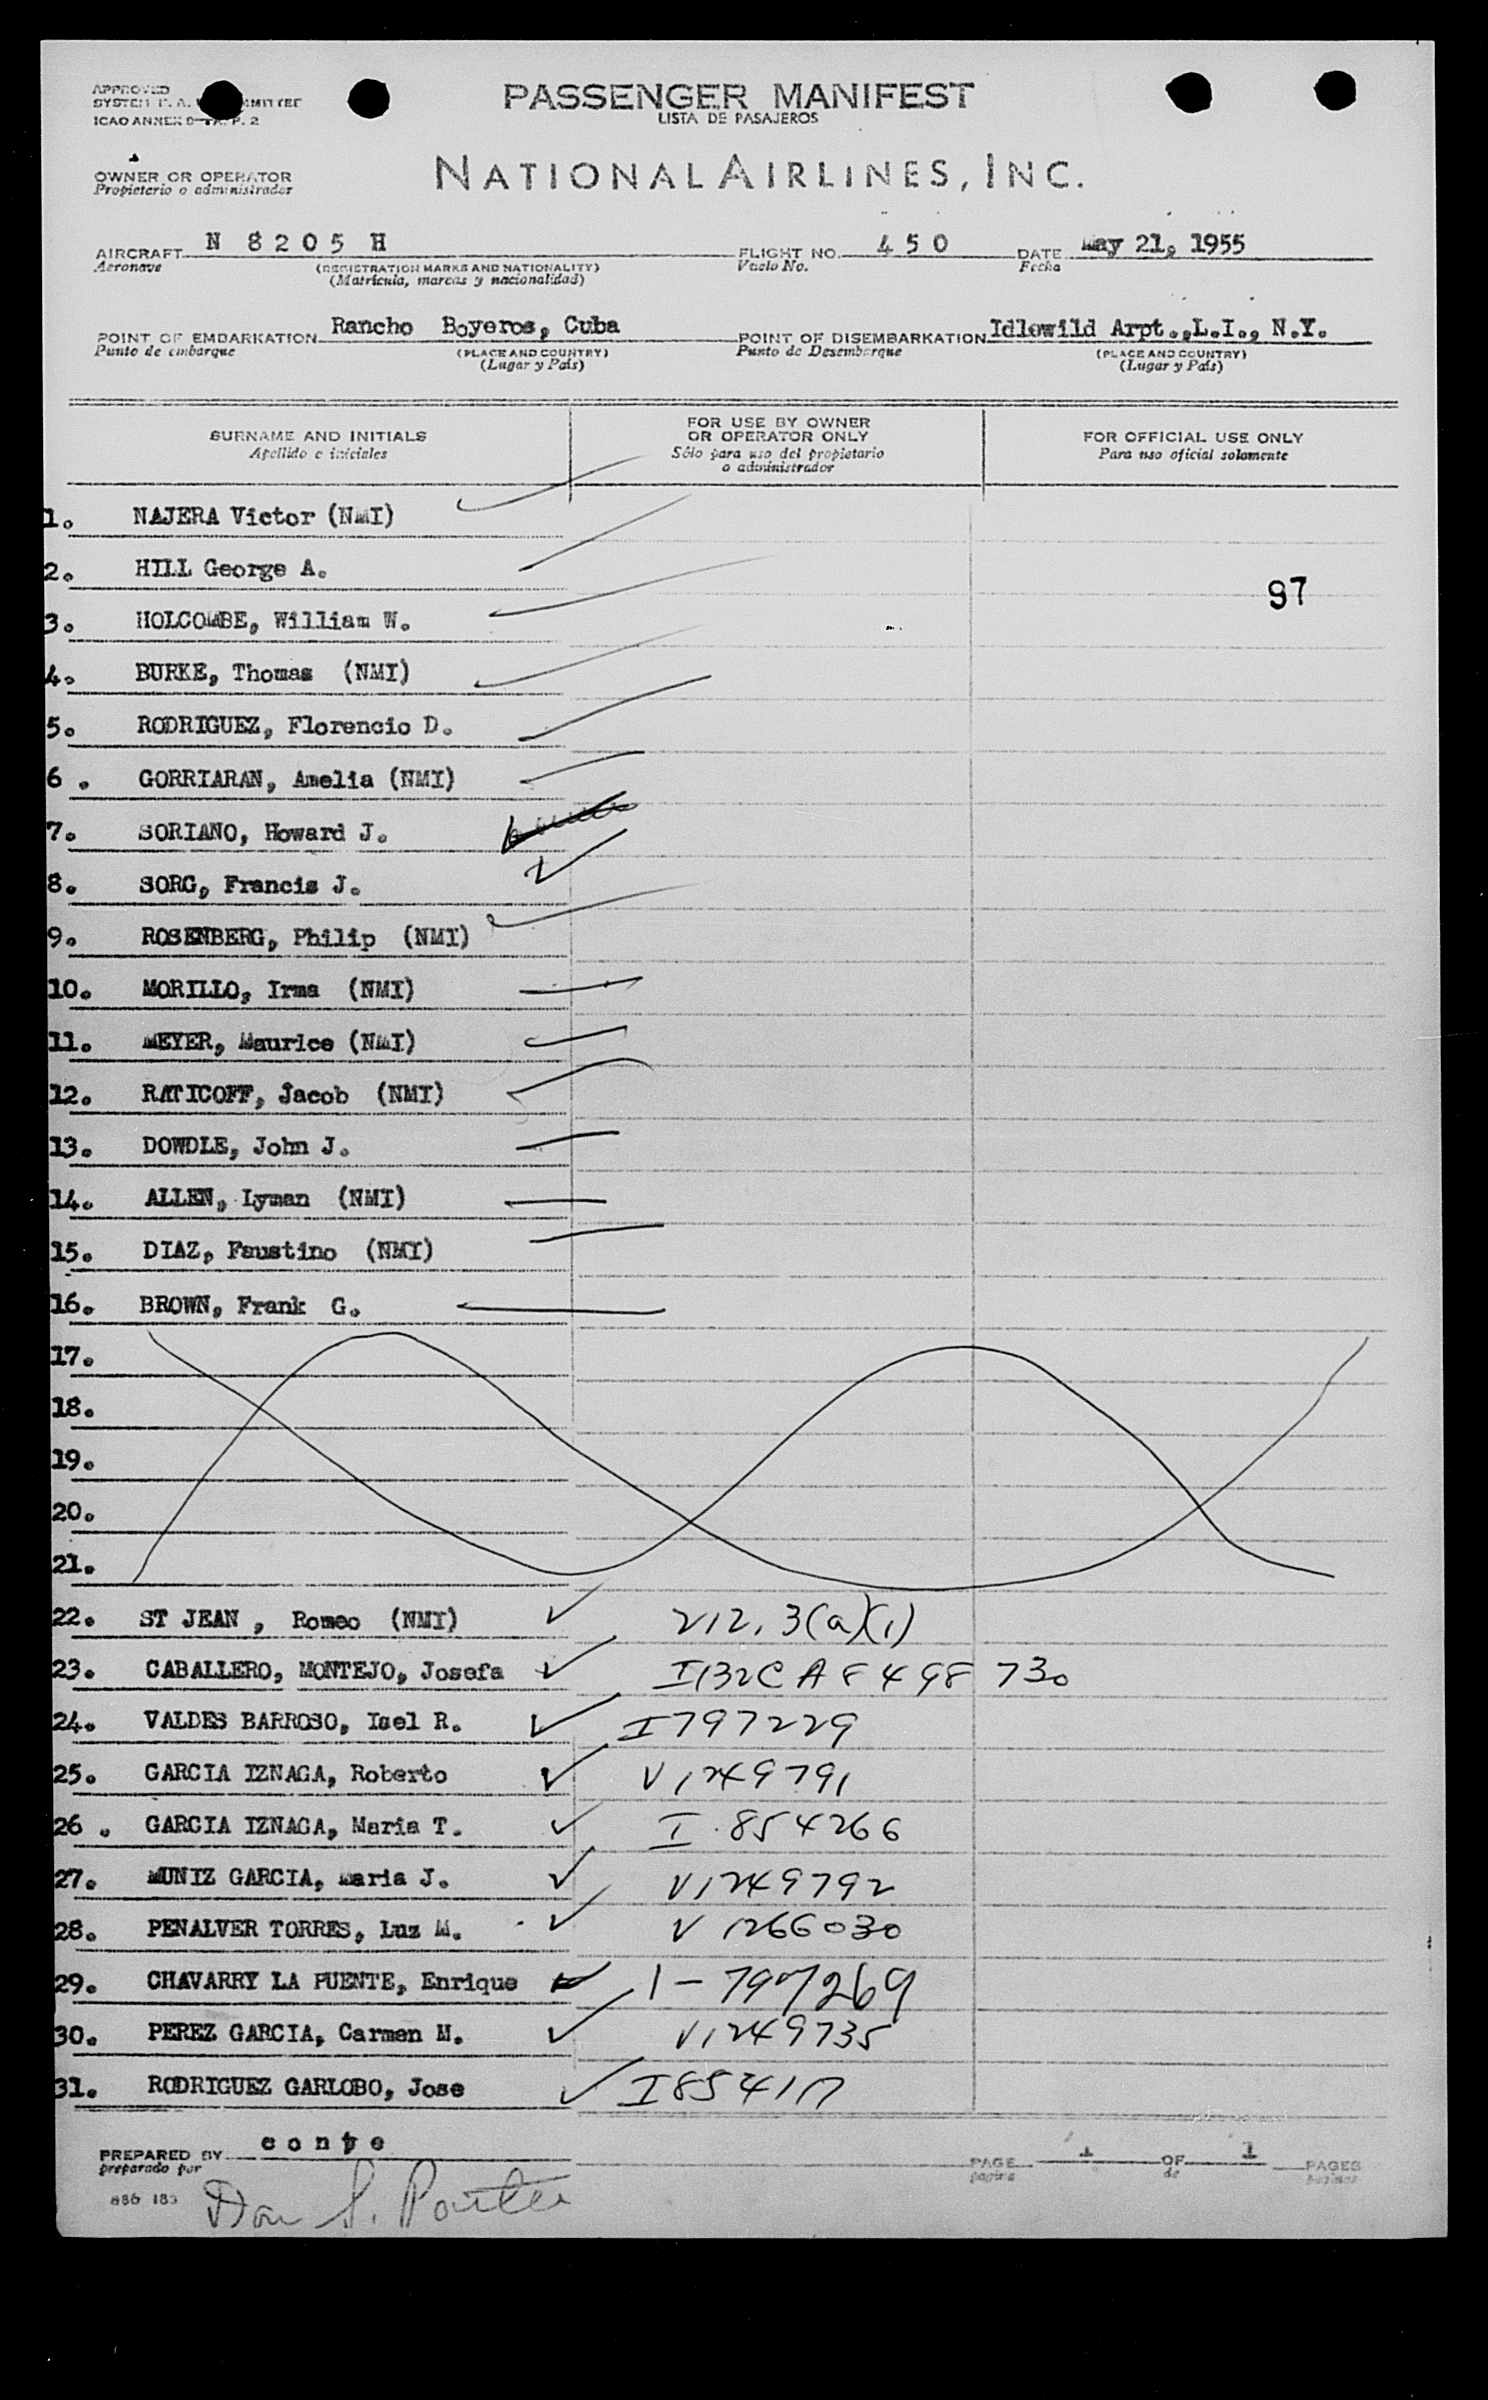 APPROVED
PASSENGER MANIFEST
LISTA DE PASAJEROS
ICAO ANNEX 9 P. 2
OWNER OR OPERATOR
Propietario o administrador
NATIONAL AIRLINES, INC.
AIRCRAFT N 8 2 0 5 H FLIGHT NO. 4 5 0 DATE May 21, 1955
Aeronave (REGISTRATION MARKS AND NATIONALITY) Vuelo No. Fecha
(Matrícula, marcas y nacionalidad)
POINT OF EMBARKATION Rancho Boyeros, Cuba POINT OF DISEMBARKATION Idlewild Arpt., L.I., N.Y.
Punto de embarque (PLACE AND COUNTRY) Punto de Desembarque (PLACE AND COUNTRY)
(Lugar y País) (Lugar y País)
SURNAME AND INITIALS FOR USE BY OWNER OR OPERATOR ONLY FOR OFFICIAL USE ONLY
Apellido e iniciales Sólo para uso del propietario o administrador Para uso oficial solamente
1. NAJERA Victor (NMI)
2. HILL George A.
97
3. HOLCOMBE, William W.
4. BURKE, Thomas (NMI)
5. RODRIGUEZ, Florencio D.
6 . GORRIARAN, Amelia (NMI)
7. SORIANO, Howard J.
8. SORG, Francis J.
9. ROSENBERG, Philip (NMI)
10. MORILLO, Irma (NMI)
11. MEYER, Maurice (NMI)
12. RATICOFF, Jacob (NMI)
13. DOWDLE, John J.
14. ALLEN, Lyman (NMI)
15. DIAZ, Faustino (NMI)
16. BROWN, Frank G.
17.
18.
19.
20.
21.
22. ST JEAN , Romeo (NMI) 212.3(a)(1)
23. CABALLERO, MONTEJO, Josefa I132C A8498 730
24. VALDES BARROSO, Isel R. I797229
25. GARCIA IZNAGA, Roberto V1249791
26 . GARCIA IZNAGA, Maria T. I 854266
27. MUNIZ GARCIA, Maria J. V1249792
28. PENALVER TORRES, Luz M. V 1266030
29. CHAVARRY LA PUENTE, Enrique I-797269
30. PEREZ GARCIA, Carmen M. V1249735
31. RODRIGUEZ GARLOBO, Jose I854117
PREPARED BY c o n t e PAGE 1 OF 1 PAGES
preparado por pagina de paginas
Don S. Porter